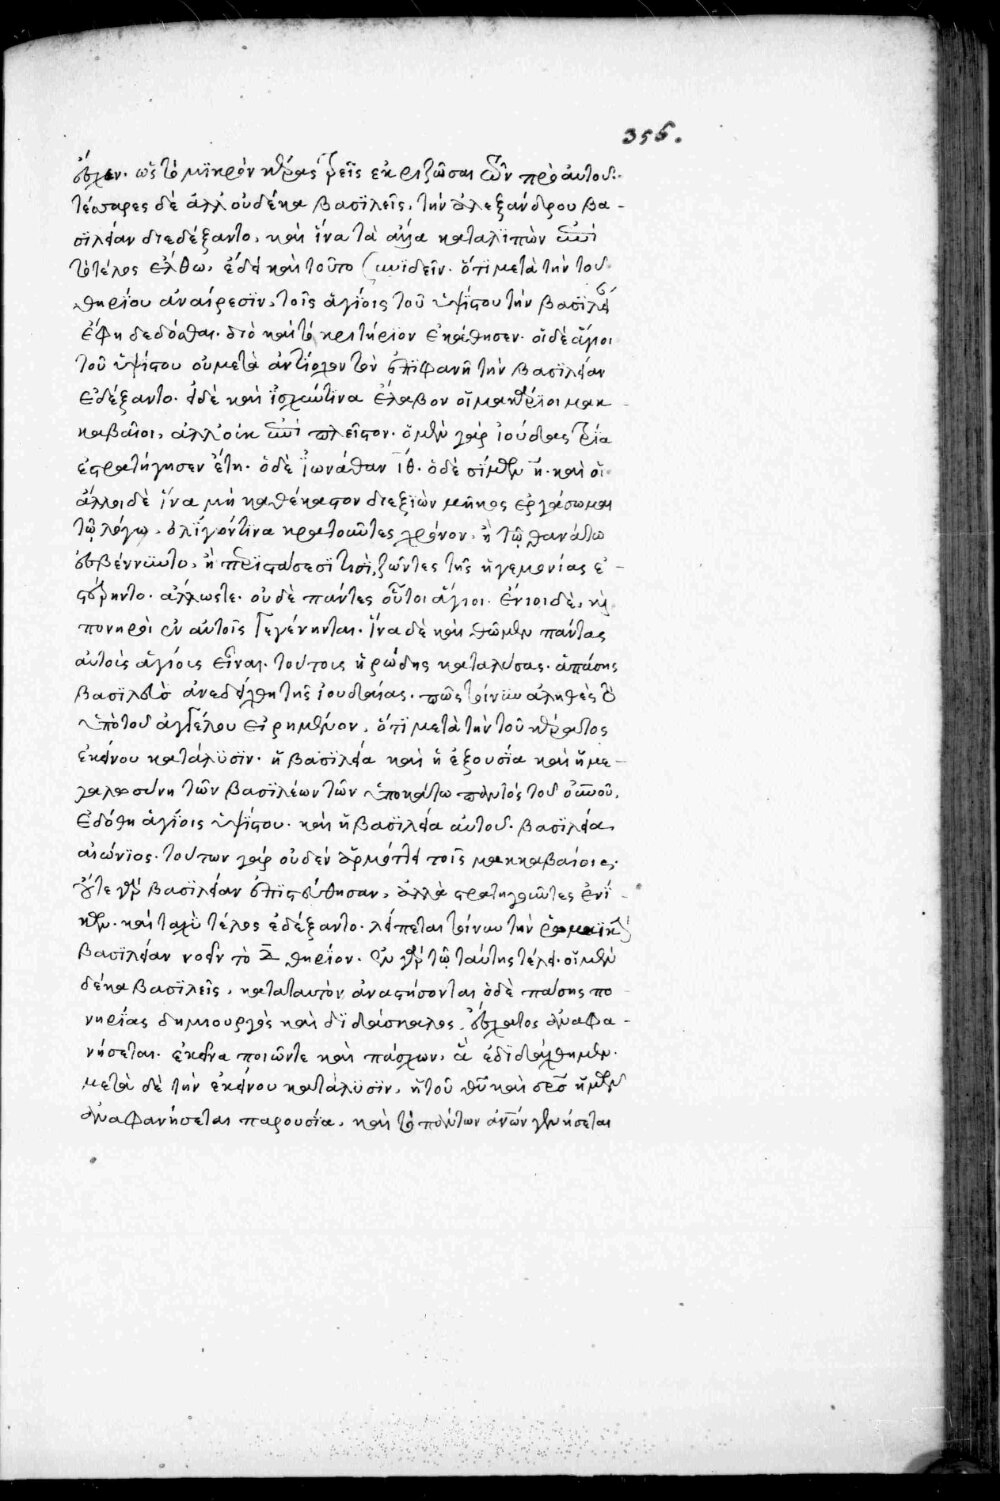 355.
ἔσχεν· ὥστὸ μϊκρὸν κέρας τρεῖς ἐκριζῶσαι τῶν πρὸ αὐτοῦ·
τέσσαρες δὲ ἀλλ' οὐδέκα βασϊλεῖς, τὴν ἀλεξάνδρου βα-
σϊλείαν διεδέξαντο, καὶ ἵνα τὰ ἄλλα καταλϊπὼν ἐπὶ
τὸ τέλος ἔλθω, ἔδει καὶ τοῦτο συνϊδεῖν· ὅτι μετὰ τὴν τοῦ
θηρίου ἀναίρεσϊν, τοῖς ἁγίοις τοῦ ὑψίστου τὴν βασϊλεί
ἔφη δεδόσθαι· διὸ καὶ τὸ κριτήριον ἐκάθησεν· οἱ δὲ ἅγιοι
τοῦ ὑψίστου οὐ μετὰ ἀντίοχον τὸν ἐπϊφανῆ τὴν βασϊλείαν
ἐδέξαντο· εἰ δὲ καὶ ἰσχύν τϊνα ἔλαβον οἱ μακάριοι μακ-
καβαῖοι, ἀλλ' οὐκ ἐπὶ πλεῖστον· ὁ μὲν γὰρ ἰούδας τρία
ἐστρατήγησεν ἔτη· ὁ δὲ ἰωνάθαν ιθ· ὁ δὲ σίμων η· καὶ οἱ
ἄλλοι δὲ ἵνα μὴ καθέκαστον διεξιὼν μῆκος ἐργάσωμαι
τῷ λόγῳ, ὀλίγον τϊνα κρατοῦντες χρόνον, ἢ τῷ θανάτω
ἐσβέννϋντο, ἢ περϊστάσεσί τισϊ, ζῶντες τῆς ἡγεμονίας ἐ-
στέρηντο· ἄλλωστε· οὐδὲ πάντες οὗτοι ἅγιοι· ἔνιοι δὲ, καὶ
πονηροὶ ἐν αὐτοῖς γεγένηνται· ἵνα δὲ καὶ θῶμεν πάντας
αὐτοὺς ἁγίους εἶναι· τούτους ἡρώδης καταλύσας· ἁπάσης
βασϊλεὺς ἀνεδείχθη τῆς ἰουδαίας· πῶς τοίνυν ἀληθὲς τὸ
ὑπὸ τοῦ ἀγγέλου εἰρημένον, ὅτϊ μετὰ τὴν τοῦ κέρατος
ἐκείνου κατάλυσϊν· ἡ βασϊλεία καὶ ἡ ἐξουσία καὶ ἡ με-
γαλοσύνη τῶν βασϊλέων τῶν ὑποκάτω παντὸς τοῦ οὐνοῦ,
ἐδόθη ἁγίοις ὑψίστου· καὶ ἡ βασϊλεία αὐτοῦ· βασϊλεία
αἰώνϊος· τούτων γὰρ οὐδὲν ἁρμόττει τοῖς μακκαβαίοις·
οὔτε γὰρ βασϊλείαν ἐπϊστεύθησαν, ἀλλὰ στρατηγοῦντες ἐνί-
κων· καὶ ταχὺ τέλος ἐδέξαντο· λείπεται τοίνυν τὴν ῥωμαϊκὴν
βασϊλείαν νοεῖν τὸ δ θηρίον· ἐν γὰρ τῷ ταύτης τέλει· οἱ μὲν
δέκα βασϊλεῖς, κατὰ ταυτὸν ἀναστήσονται ὁ δὲ πάσης πο
νηρίας δημιουργὸς καὶ διδάσκαλος, ἔσχατος ἀναφα-
νήσεται· ἐκεῖνα ποιῶν τε καὶ πάσχων, ἃ ἐδιδάχθημεν·
μετὰ δὲ τὴν ἐκείνου κατάλϋσϊν, ἡ τοῦ θῦ καὶ σρς ἡμῶν
ἀναφανήσεται παρουσία, καὶ τὸ πάντων ἀνῶν γενήσεται